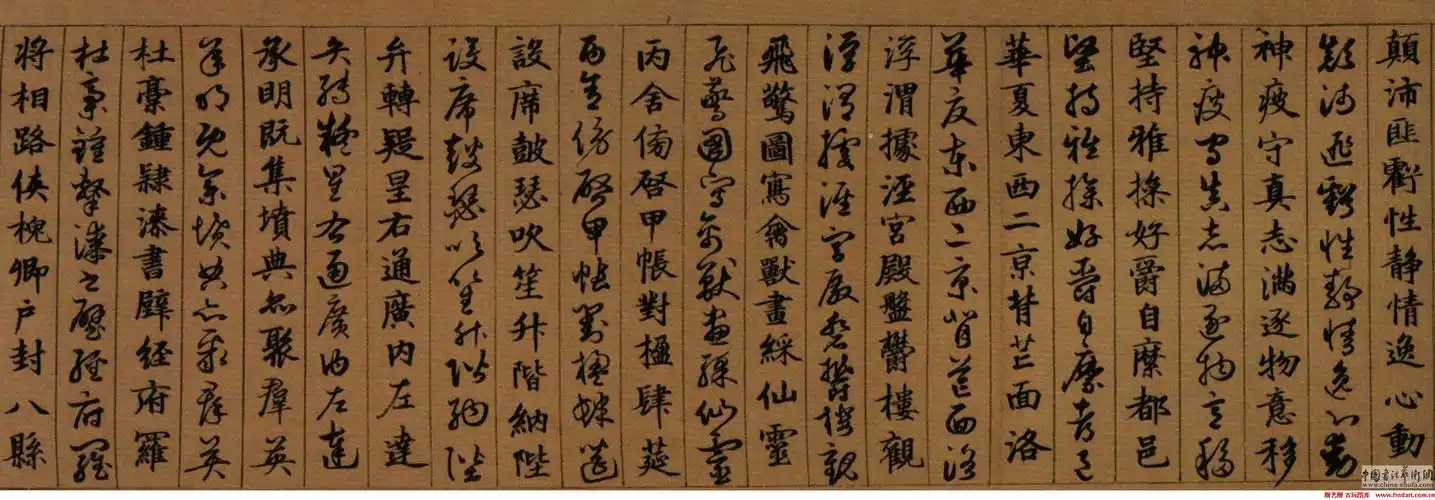 顛沛匪虧性静情逸心動
顛沛匪虧性静情逸心動
神疲守真志满逐物意移
神疲守真志满逐物意移
堅持雅操好爵自縻都邑
堅持雅操好爵自縻都邑
華夏東西二京背芒面洛
華夏東西二京背芒面洛
浮渭據涇宮殿盤鬱樓觀
浮渭據涇宮殿盤鬱樓觀
飛驚圖寫禽獸畫綵仙靈
飛驚圖寫禽獸畫綵仙靈
丙舍傍啓甲帳對楹肆莚
丙舍傍啓甲帳對楹肆莚
設席鼓瑟吹笙升階納陛
設席鼓瑟吹笙升階納陛
弁轉疑星右通廣内左達
弁轉疑星右通廣内左達
承明既集墳典亦聚羣英
承明既集墳典亦聚羣英
杜稾鍾隸漆書壁経府羅
杜稾鍾隸漆書壁経府羅
将相路俠槐卿户封八縣
中国书法艺术网
www.china-shufa.com
古玩图库 www.findart.com.cn